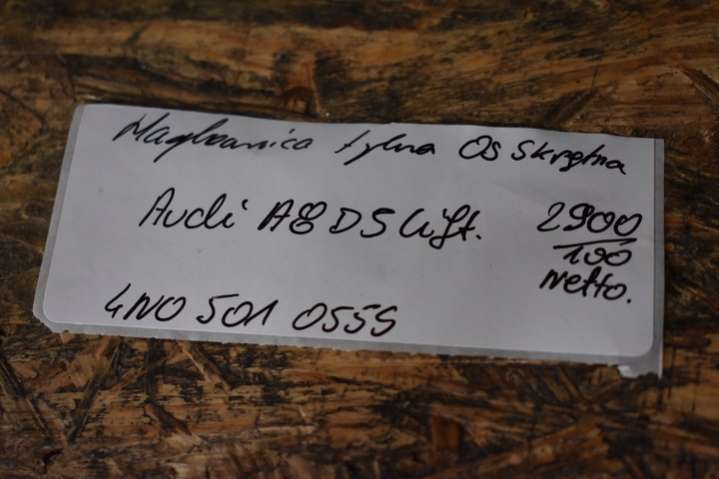 Maglownica tylna Os Skrętna
Audi A8 D5 lift. 2900
100
netto.
4N0 501 055S